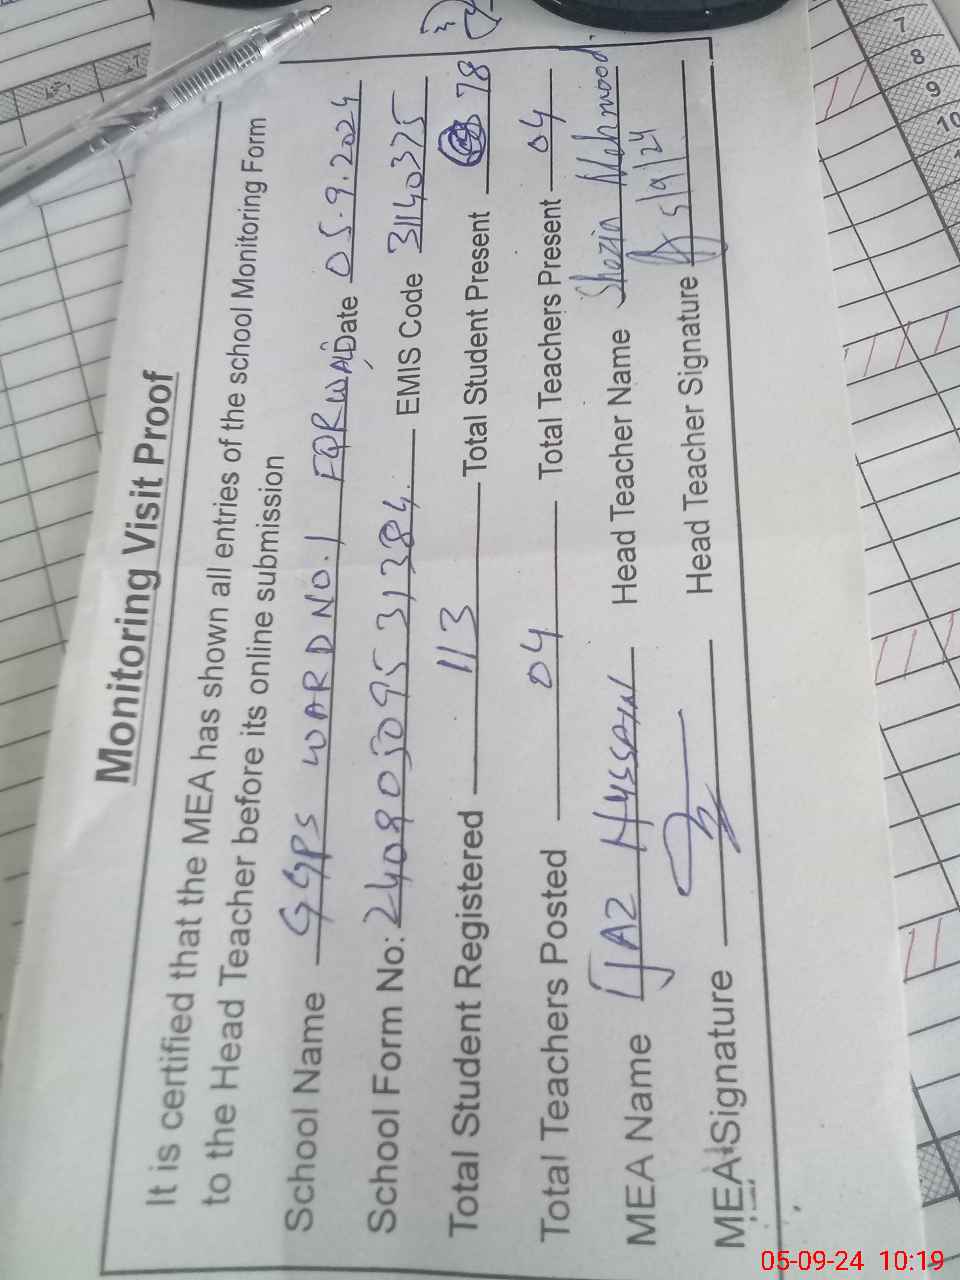 Monitoring Visit Proof
It is certified that the MEA has shown all entries of the school Monitoring Form
to the Head Teacher before its online submission
School Name GGPS WARD NO. 1 FQRWALI Date 05.9.2024
School Form No: 24080509531384 EMIS Code 31140375
Total Student Registered 113 Total Student Present 78
Total Teachers Posted 04 Total Teachers Present 04
MEA Name IJAZ HUSSAIN Head Teacher Name Shazia Mahmood
MEA Signature Head Teacher Signature 5/9/24
7
8
9
10
05-09-24 10:19